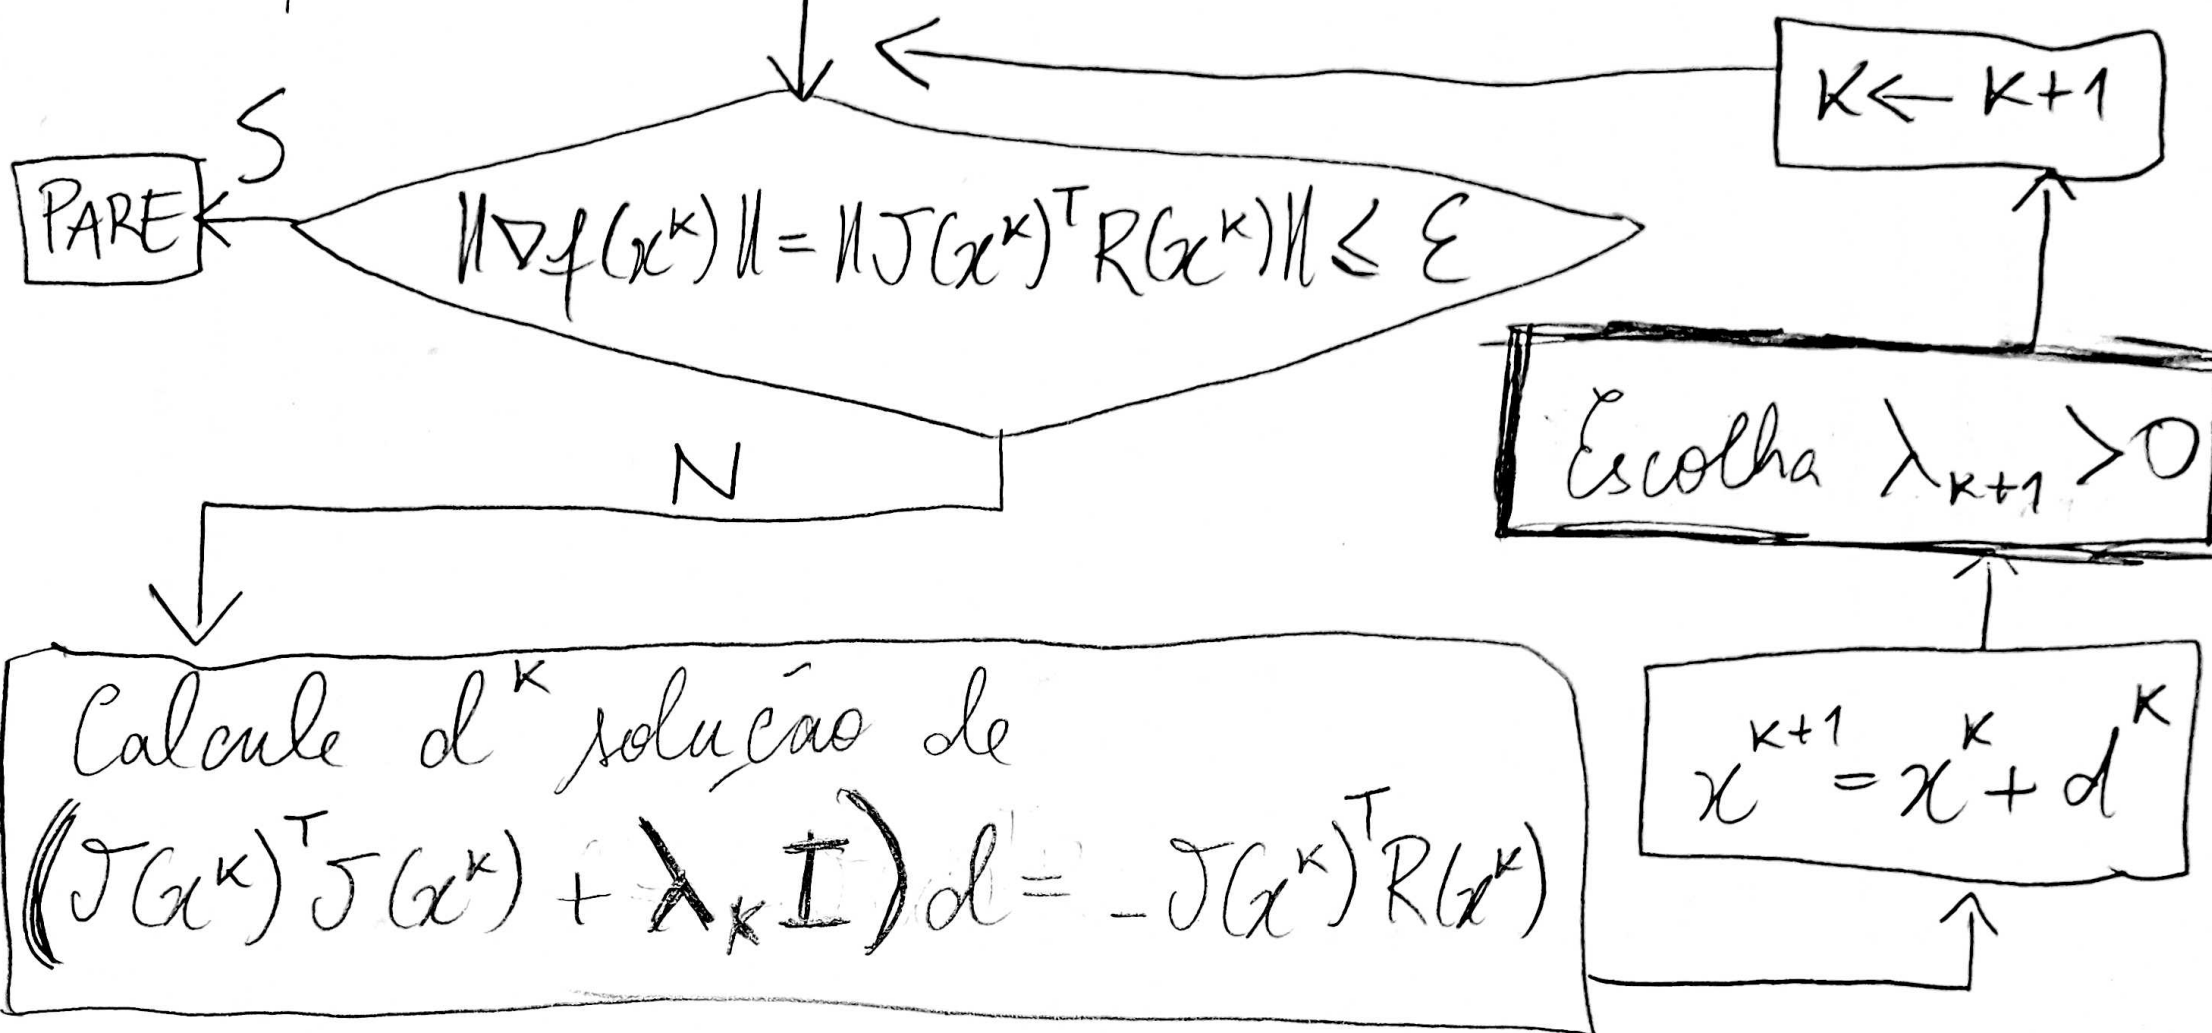 K ← K+1
S
PARE
||∇f(x^K)|| = ||J(x^K)^T R(x^K)|| ≤ ε
Escolha λ_{K+1} > 0
N
Calcule d^K solução de
(J(x^K)^T J(x^K) + λ_K I) d = -J(x^K)^T R(x^K)
x^{K+1} = x^K + d^K